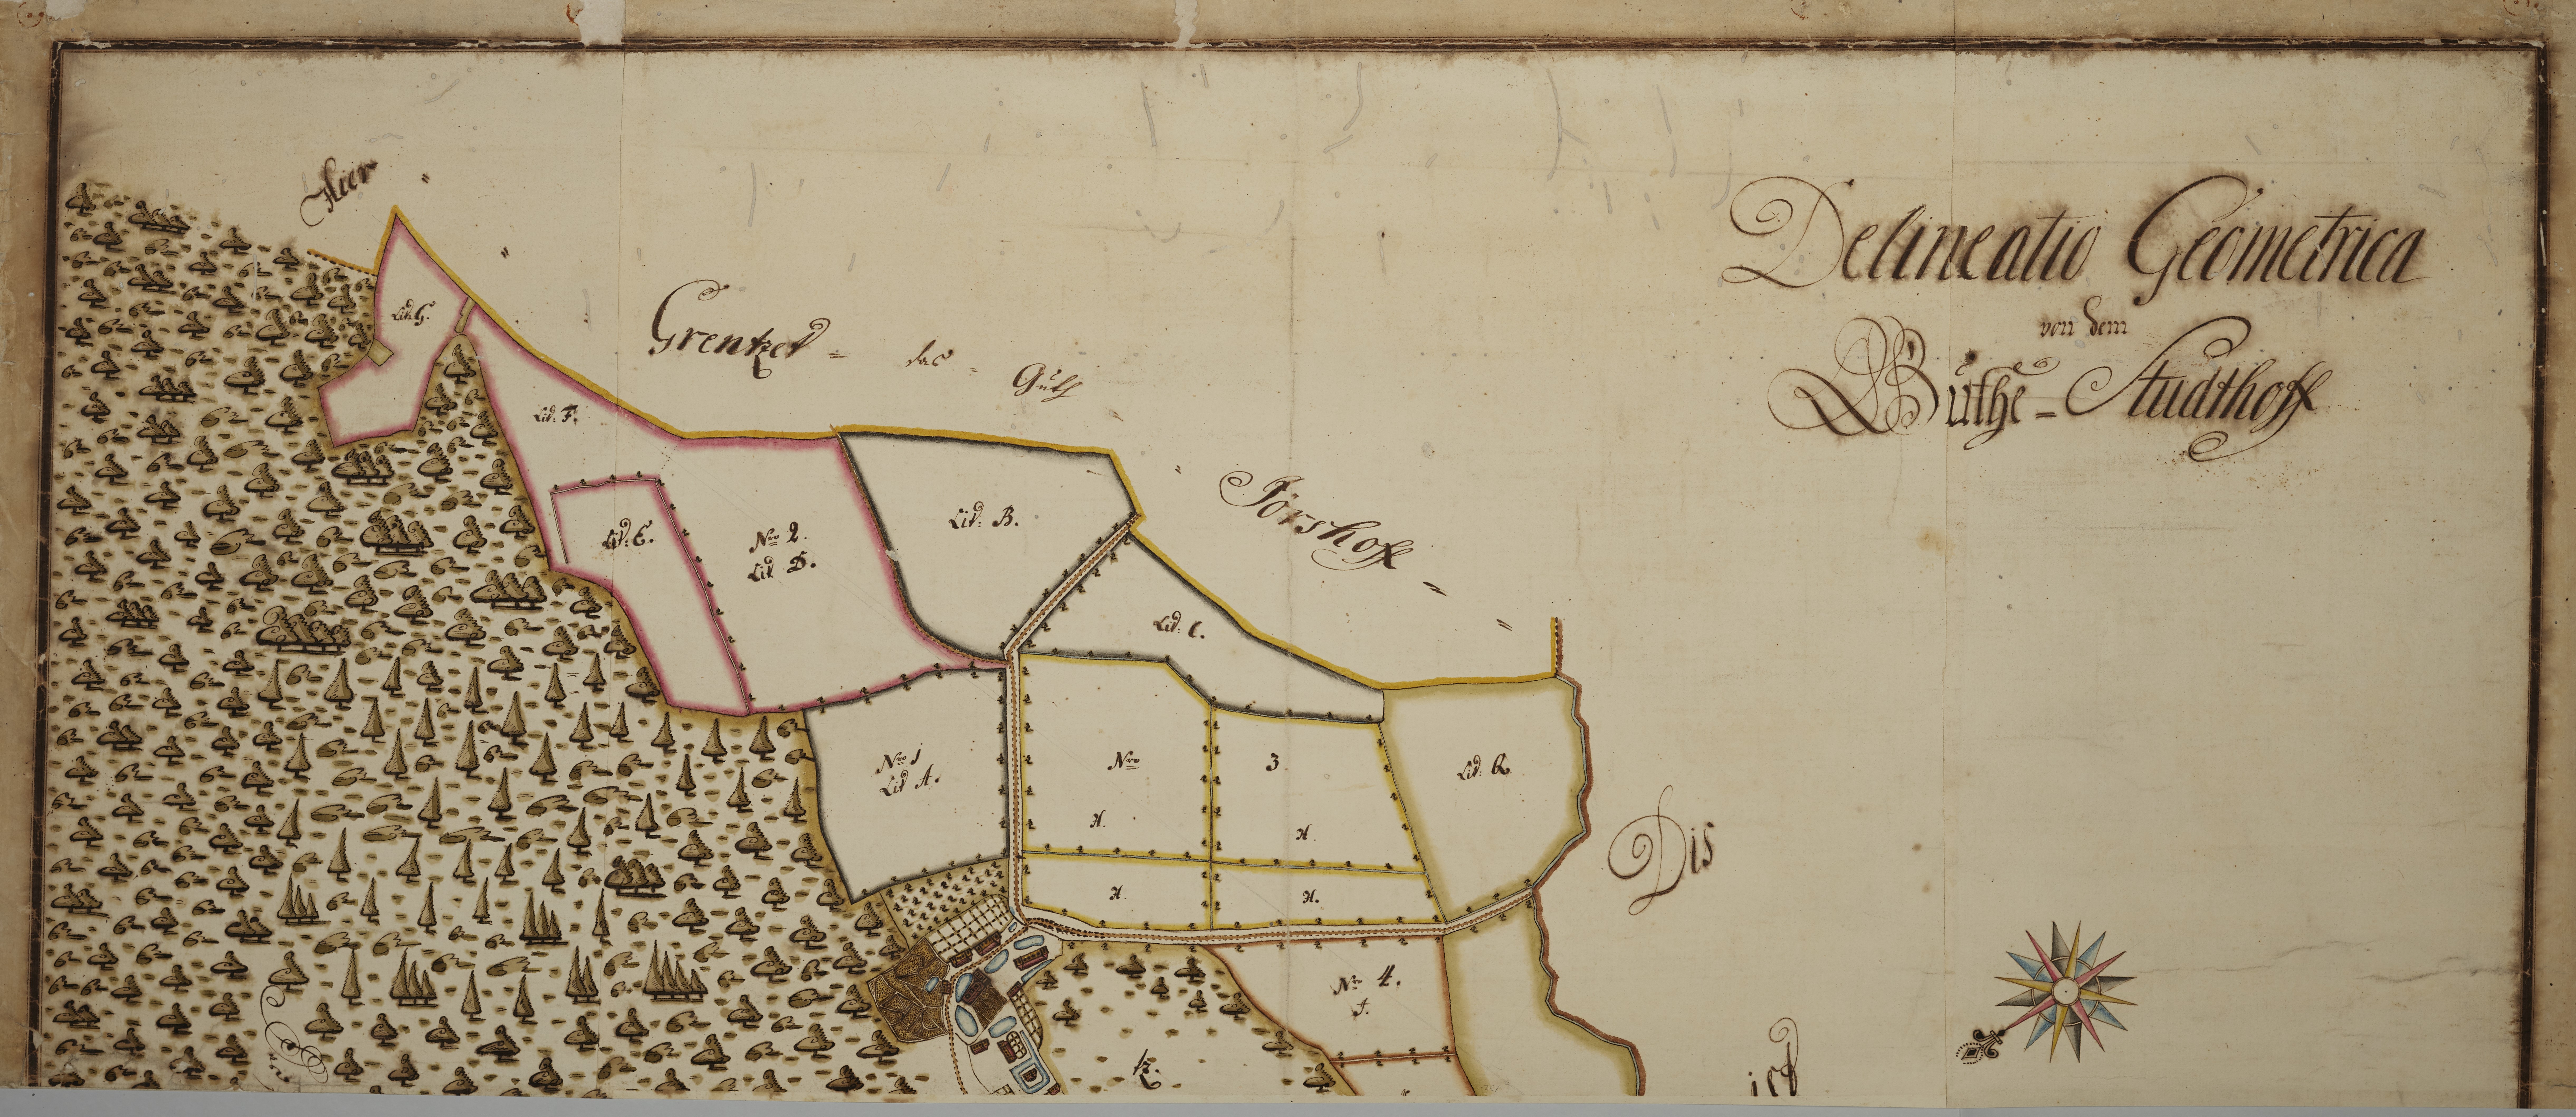 Delineatio Geometrica
von dem
Güthe = Studthoff
Hier =
Grentzet = das = Guth =
Jörshoff =
Lit. G.
Lit. F.
Lit. E.
Nro 2.
Lit D.
Lit: B.
Lit: C.
Nro 1
Lit A.
Nro 3
H. H.
H. H.
Lit: Q
Nro 4.
J.
K.
Dis
ist